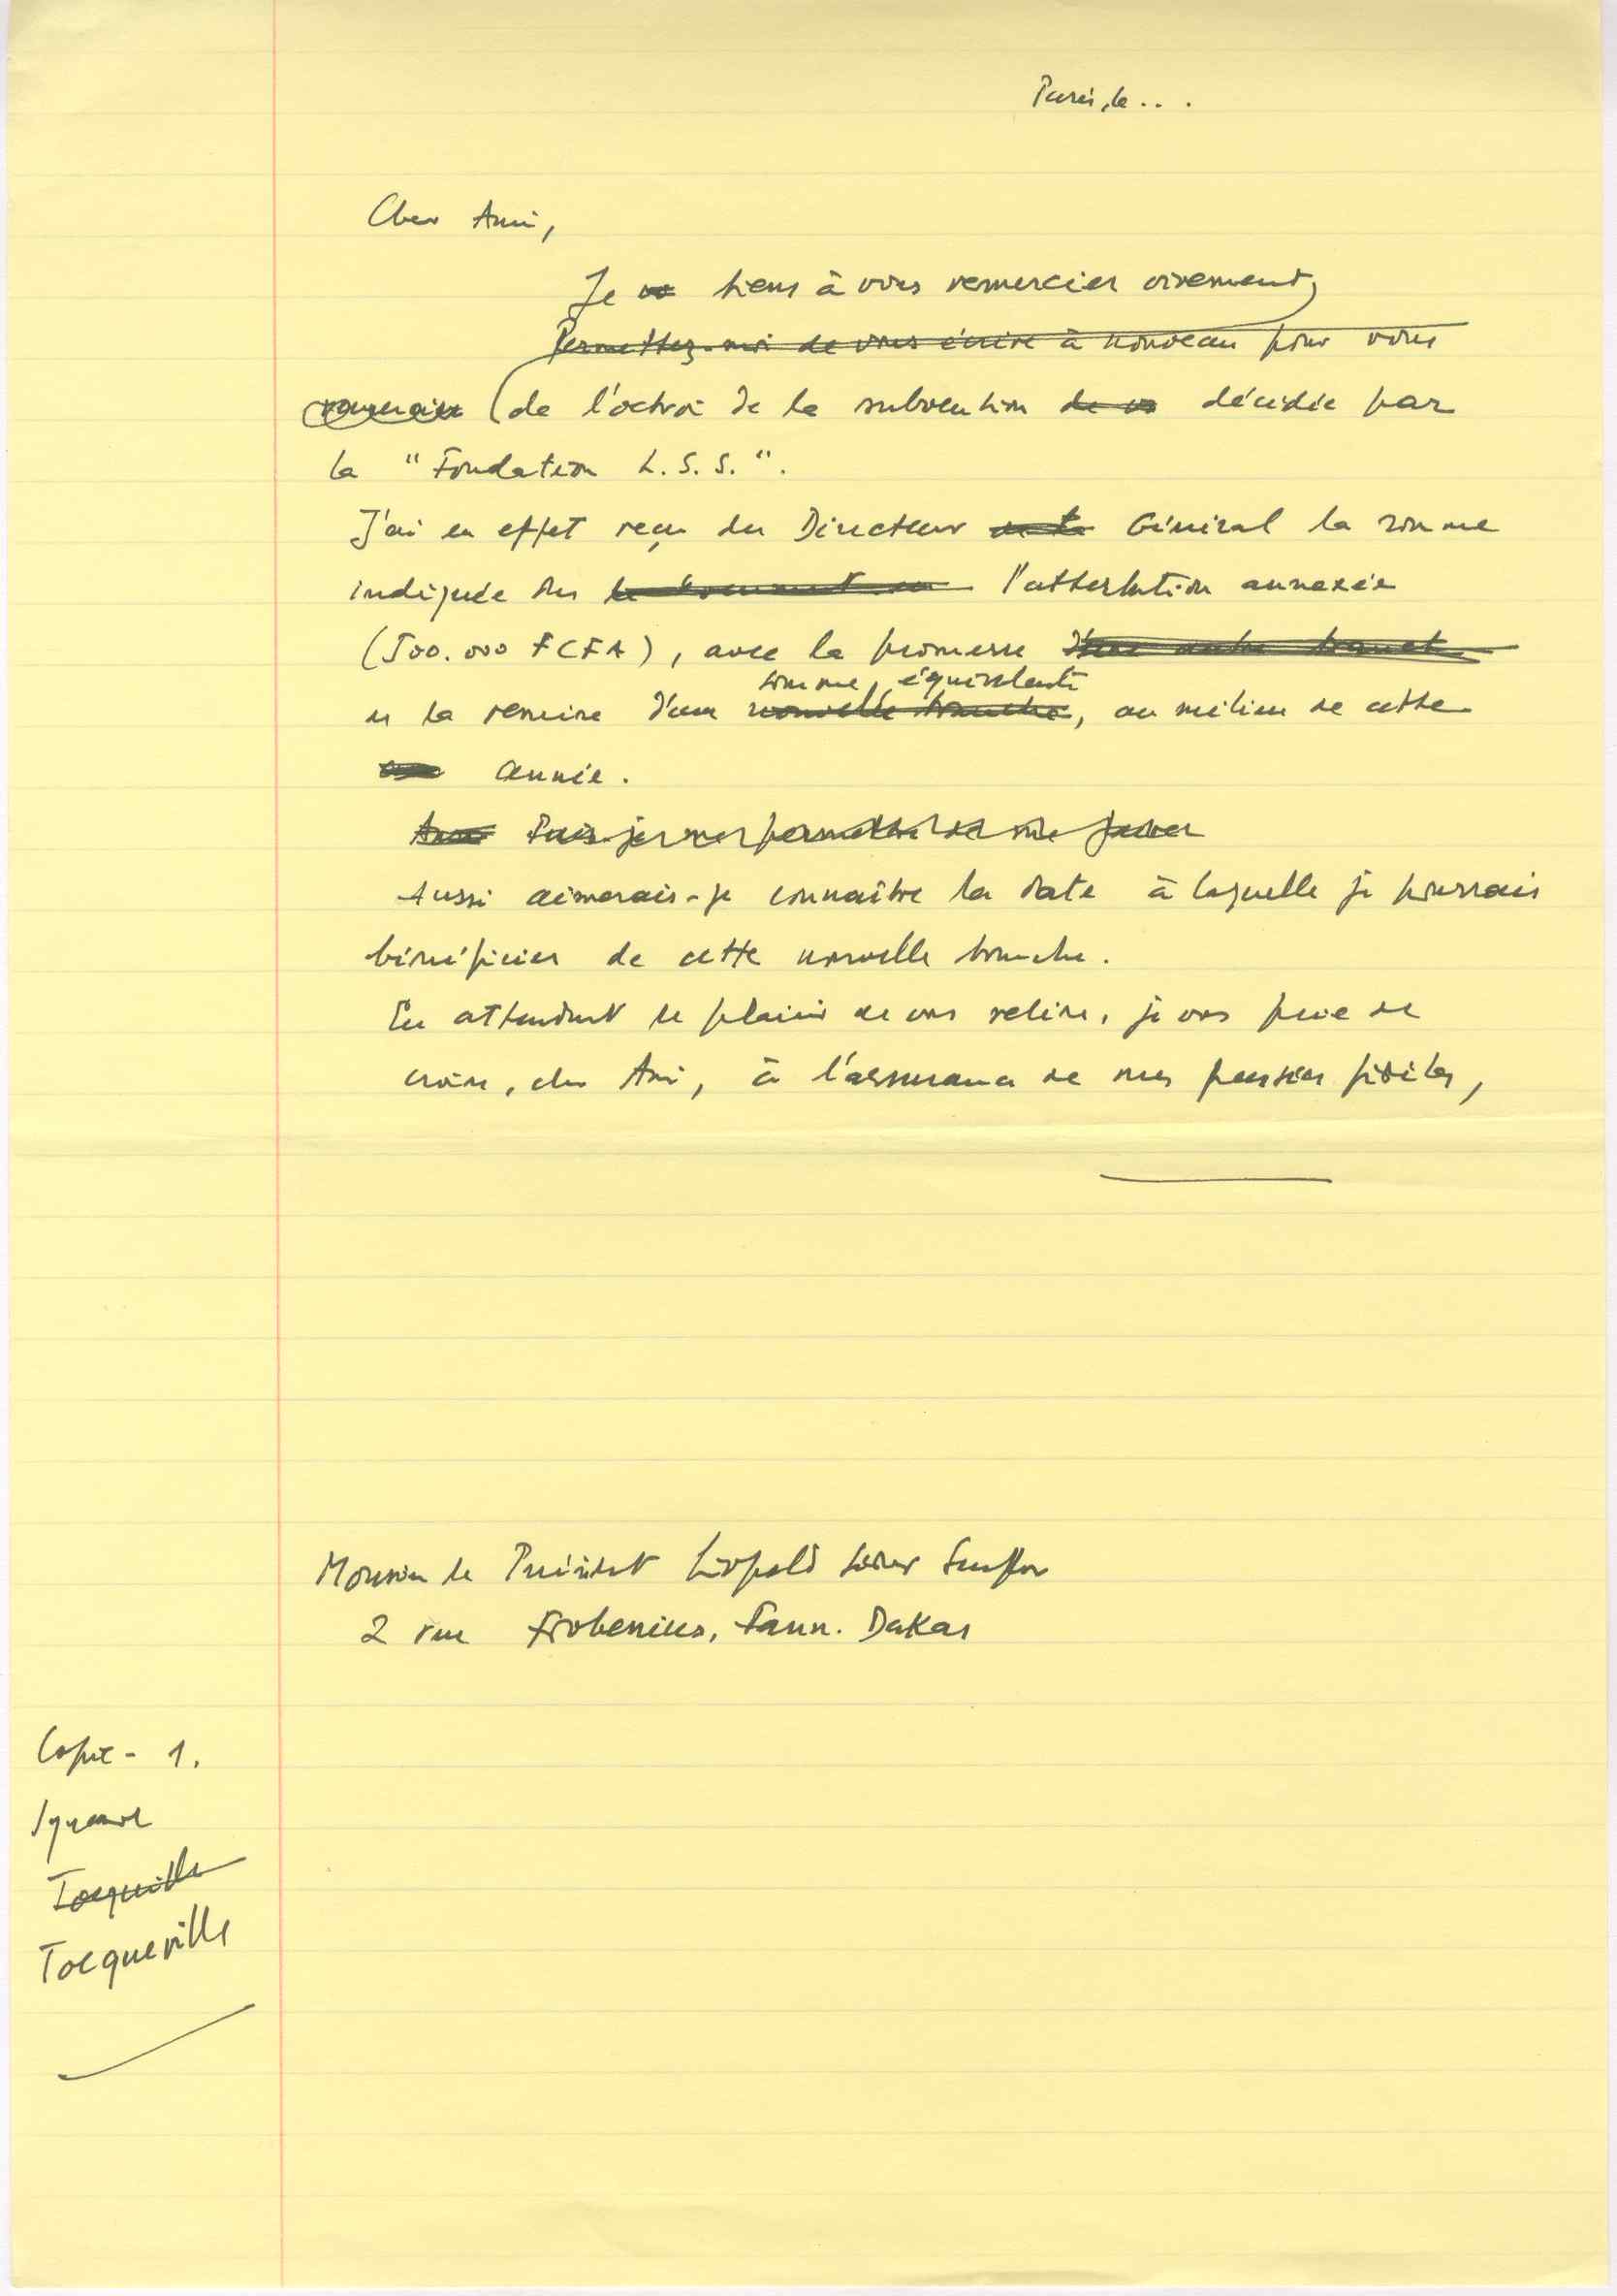 Paris, le . . .
Cher Ami,
Je tiens à vous remercier vivement,
Permettez-moi de vous écrire à nouveau pour vous
remercier (de l'octroi de la subvention de vs décidée par
la "Fondation L.S.S.".
J'ai en effet reçu du Directeur Général la somme
indiquée sur le document en l'attestation annexée
(500.000 FCFA), avec la promesse d'une autre tranche
somme, équivalente
de la remise d'une nouvelle tranche, au milieu de cette
année.
Puis-je me permettre de me
Aussi aimerais-je connaître la date à laquelle je pourrais
bénéficier de cette nouvelle tranche.
En attendant le plaisir de vous relire, je vous prie de
croire, cher Ami, à l'assurance de mes pensées fidèles,
Monsieur le Président Léopold Sédar Senghor
2 rue Frobenius, Fann. Dakar
Copie - 1.
Square
Tocqueville
Tocqueville